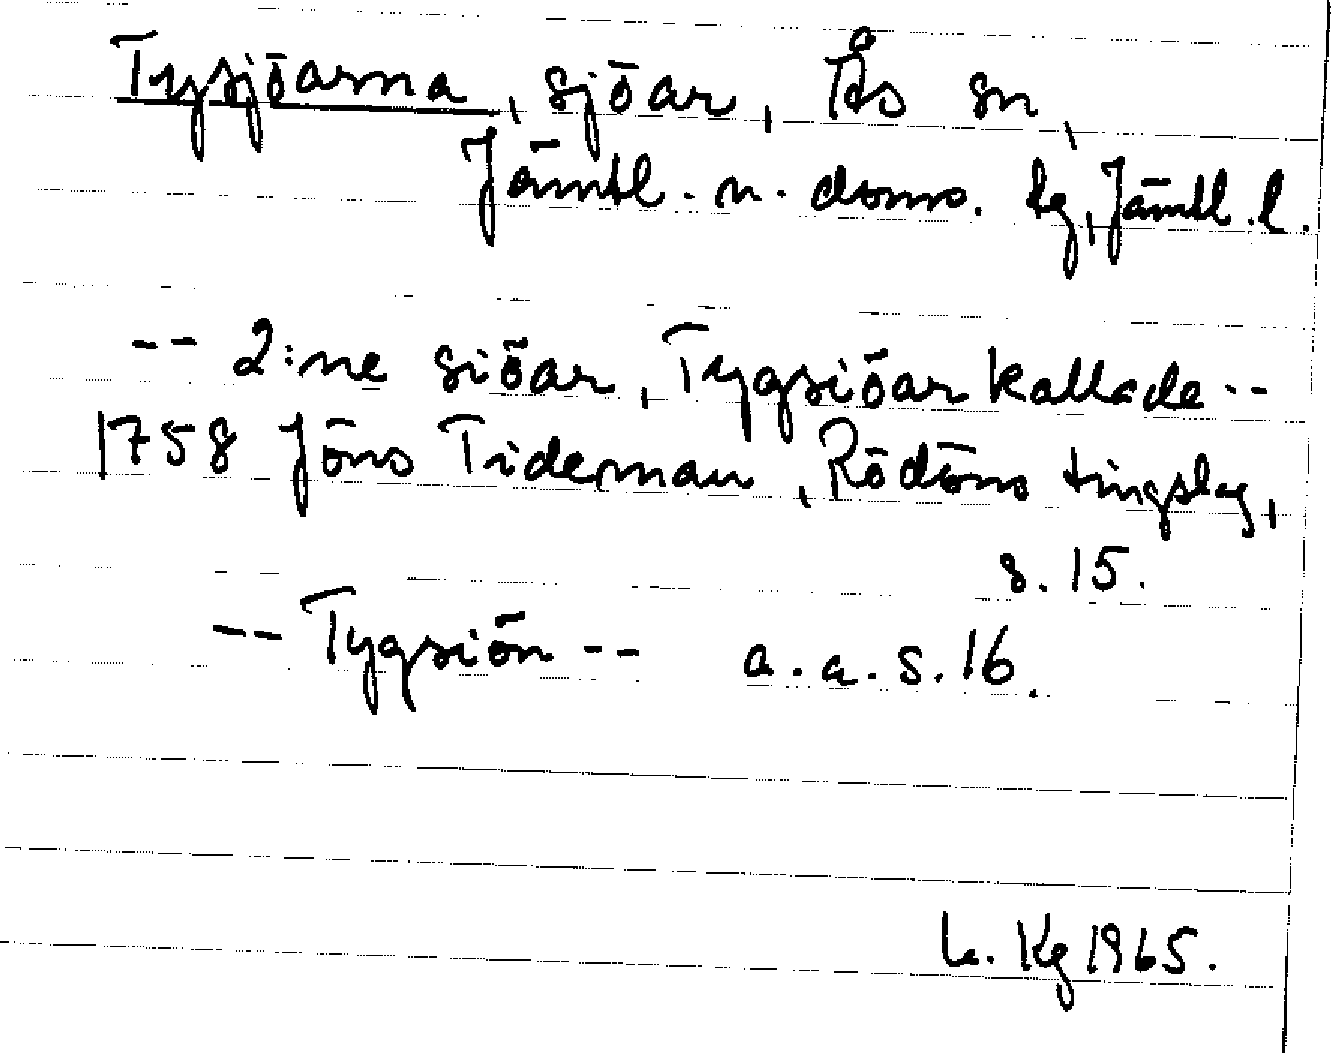 Tysjöarna, sjöar, Ås sn,
Jämtl. n. doms. lg, Jämtl. l.
-- 2:ne siöar, Tygsiöar kallade --
1758 Jöns Tideman, Rödöns tingslag,
s. 15.
-- Tygsiön -- a. a. s. 16.
L. Kg 1965.